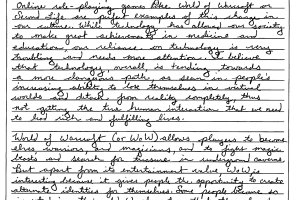 Online role-playing games like World of Warcraft or
Second Life are perfect examples of this change in
our culture. While technology has allowed our society
to make great achievements in medicine and
education, our reliance on technology is very
troubling and needs more attention. I believe
that technology overall is tending towards
a more dangerous path, as seen in people's
increasing ability to lose themselves in virtual
worlds and detach from reality completely, thus
not getting the true human interaction that we need
to live rich and fulfilling lives.
World of Warcraft (or WoW) allows players to become
elves, warriors, and magicians, and to fight magic
beasts and search for treasure in underground caverns.
But apart from its entertainment value WoW is
interesting because it gives people the opportunity to create
alternate identities for themselves. Some people become so